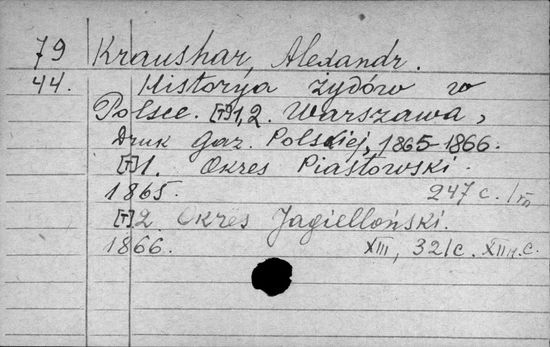 79 Kraushar, Alexandr.
44. Historya żydów w
Polsce. [T]1,2. Warszawa,
Druk Gaz. Polskiej, 1865-1866.
[T]1. Okres Piastowski.
1865. 247 c.
[T]2. Okres Jagielloński.
1866. XIII, 321c. XII н.с.